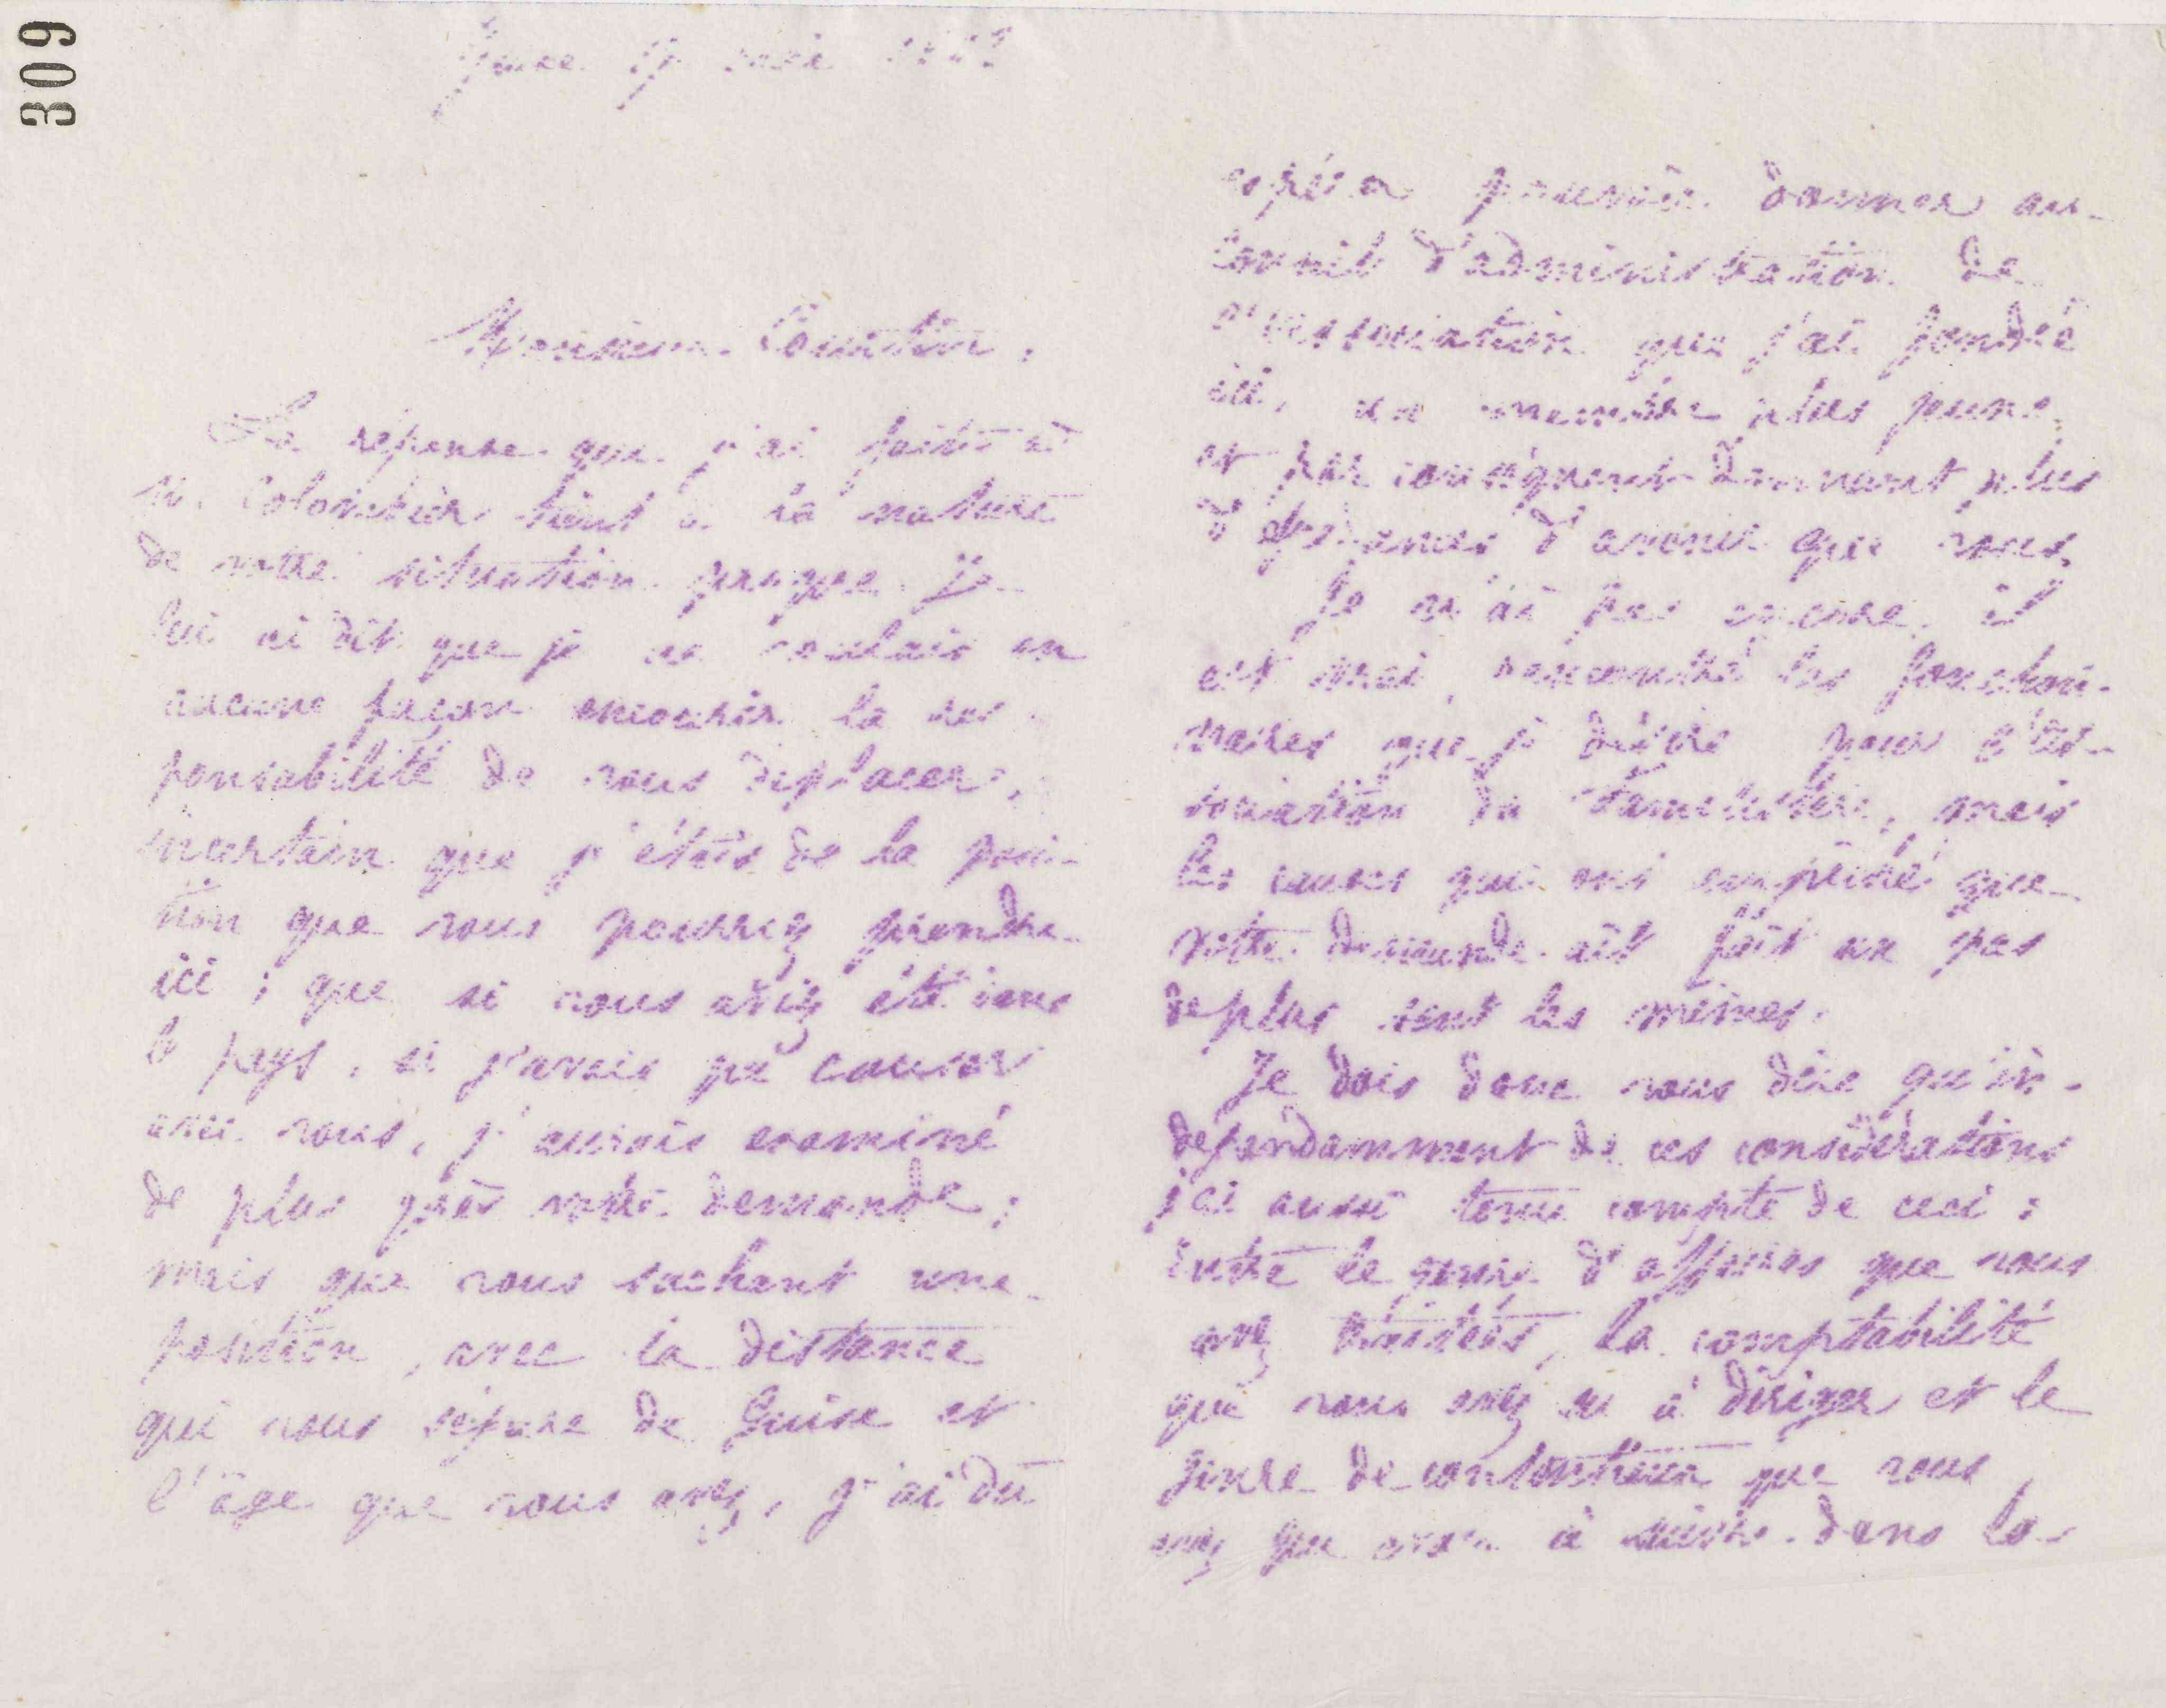 309
Guise 17 mai
Monsieur Counitin,
La réponse que j'ai faite à
M. Colombier tient à la nature
de votre situation puisque je
lui ai dit que je ne voulais en
aucune façon encourir la res-
ponsabilité de vous déplacer,
incertain que j'étais de la posi-
tion que vous pourriez prendre
ici ; que si vous aviez été dans
le pays, si j'avais pu causer
avec vous, j'aurais examiné
de plus près votre demande ;
mais que vous sachant une
position, avec la distance
qui vous sépare de Guise et
l'âge que vous avez, j'ai dû
espérer pouvoir donner au
conseil d'administration de
l'association que j'ai fondée
ici, un membre plus jeune,
et par conséquent donnant plus
d'espérances d'avenir que vous.
Je n'ai pas encore, il
est vrai, rencontré les fonction-
naires que je désire pour l'as-
sociation du Familistère, mais
les causes qui ont empêché que
votre demande ait fait un pas
de plus sont les mêmes.
Je dois donc vous dire qu'in-
dépendamment de ces considérations
j'ai aussi tenu compte de ceci :
Entre le genre d'affaires que vous
avez traitées, la comptabilité
que vous avez eu à diriger et le
genre de contentieux que vous
avez pu avoir à suivre dans la